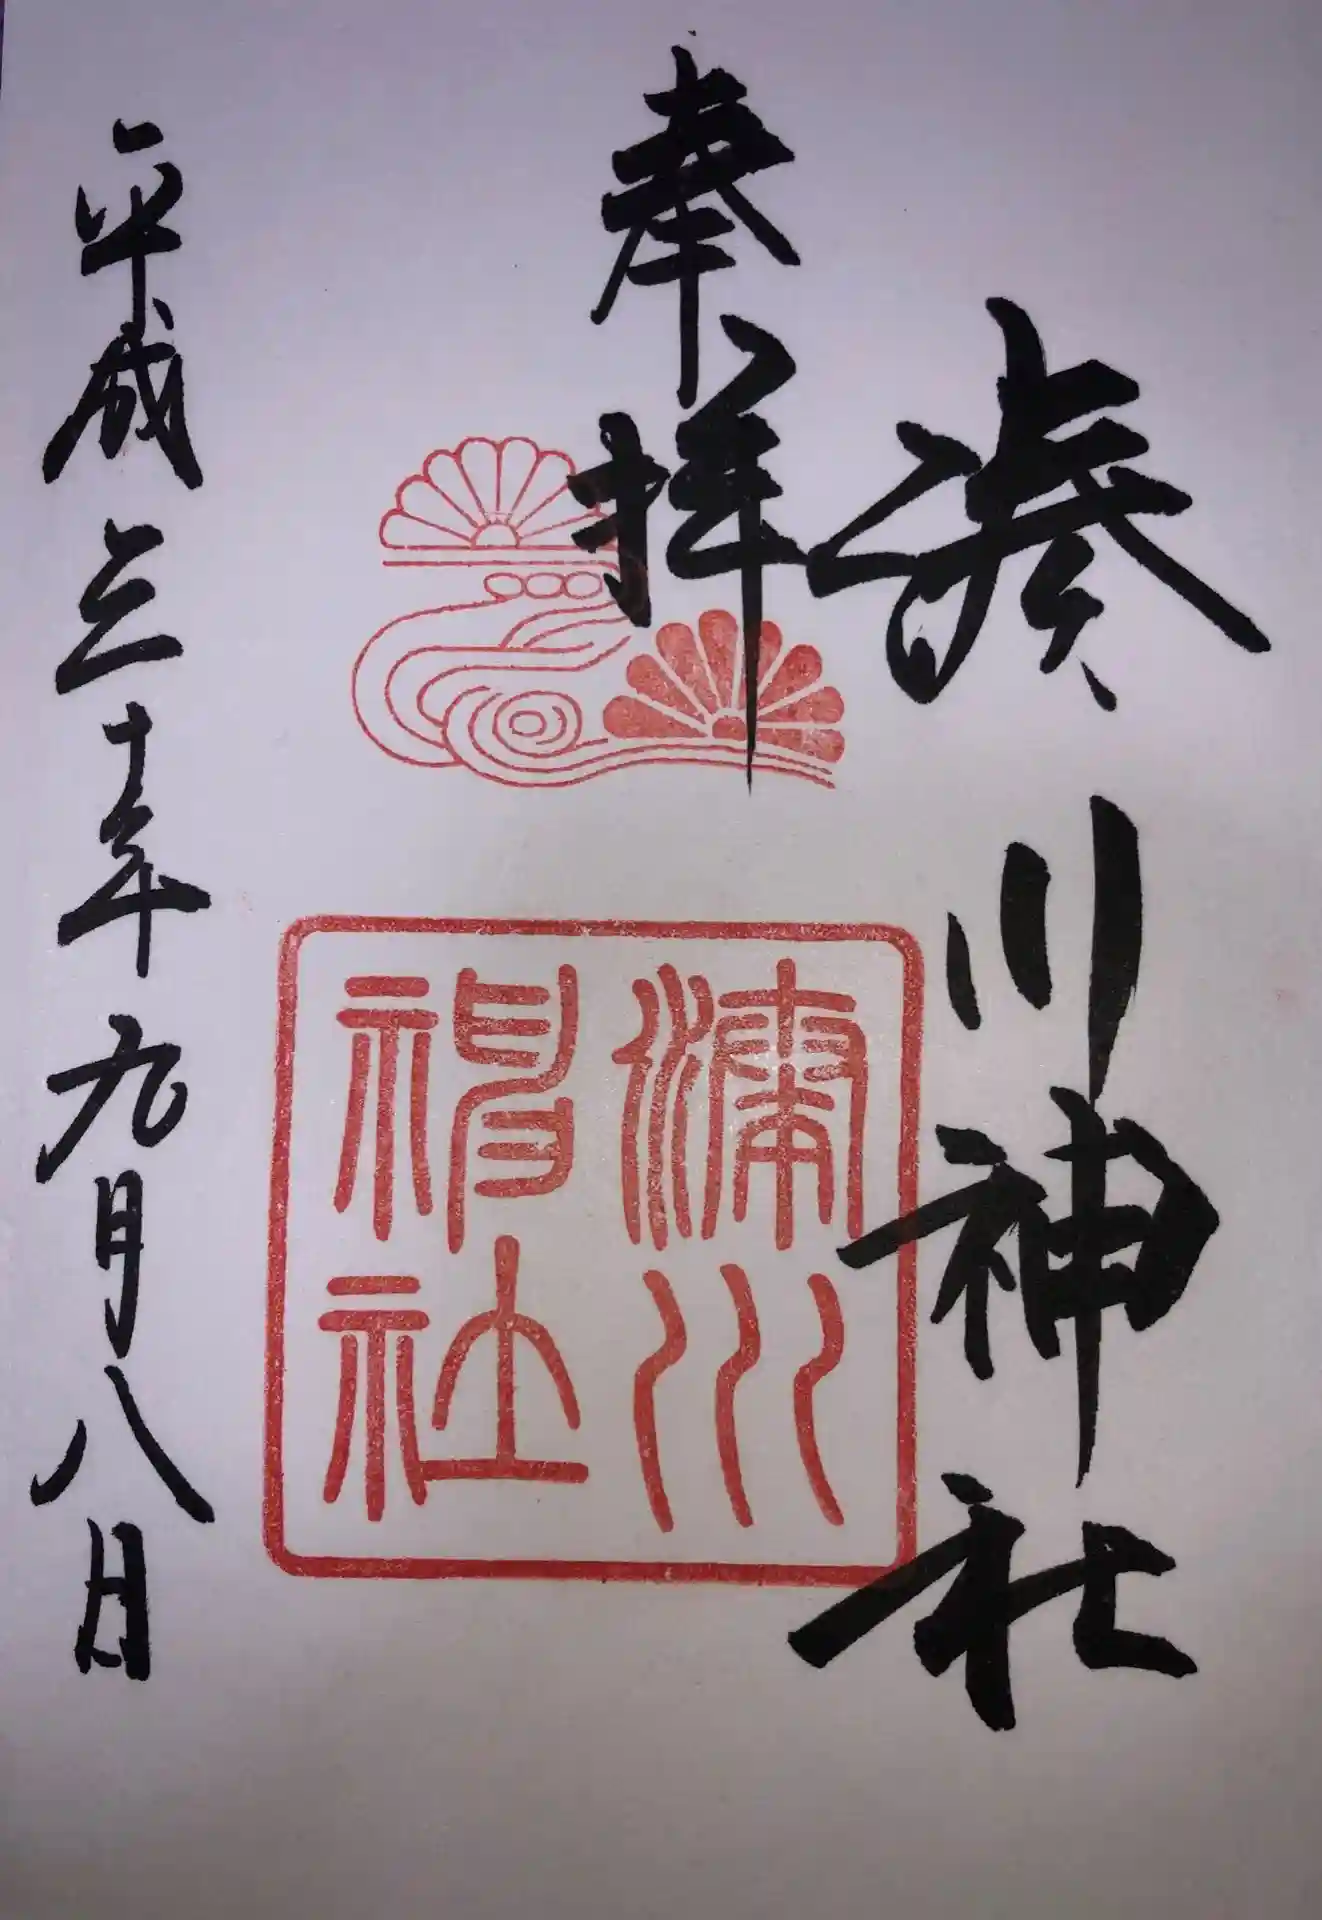 湊川神社
奉拝
湊川
神社
平成三十年九月八日